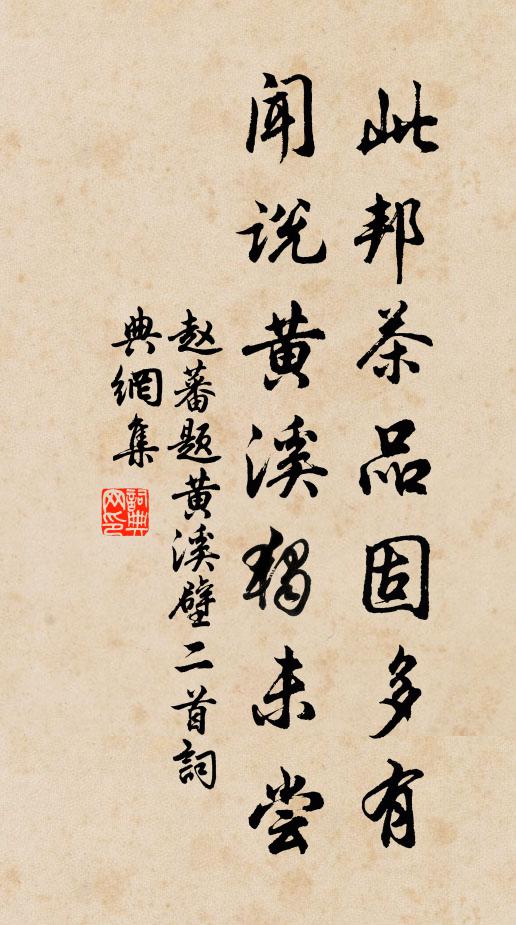 此邦茶品固多有
闻说黄溪独未尝
赵蕃题黄溪壁二首詞
典網集
詞典
网印